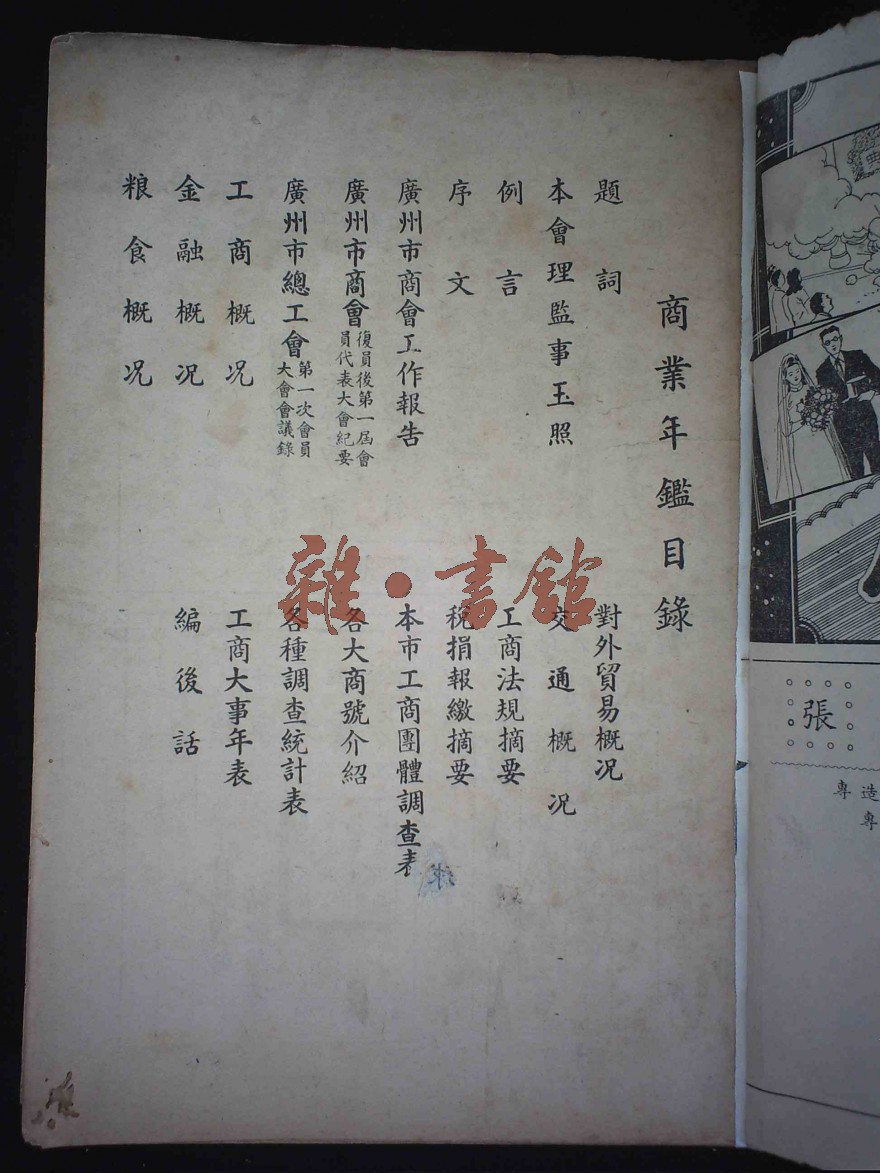 商業年鑑目錄
題詞
本會理監事玉照
例言
序文
廣州市商會工作報告
廣州市商會復員後第一屆會員代表大會紀要
廣州市總工會第一次會員大會會議錄
工商概況
金融概況
粮食概況
對外貿易概況
交通概況
工商法規摘要
税捐報繳摘要
本市工商團體調查表
各大商號介紹
各種調查統計表
工商大事年表
編後話
雜·書館
張
造專
專